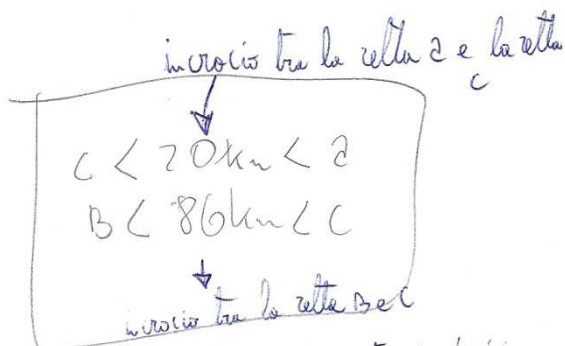 incrocio tra la retta a e la retta
c
c < 20km < a
B < 86km < C
incrocio tra la retta B e C